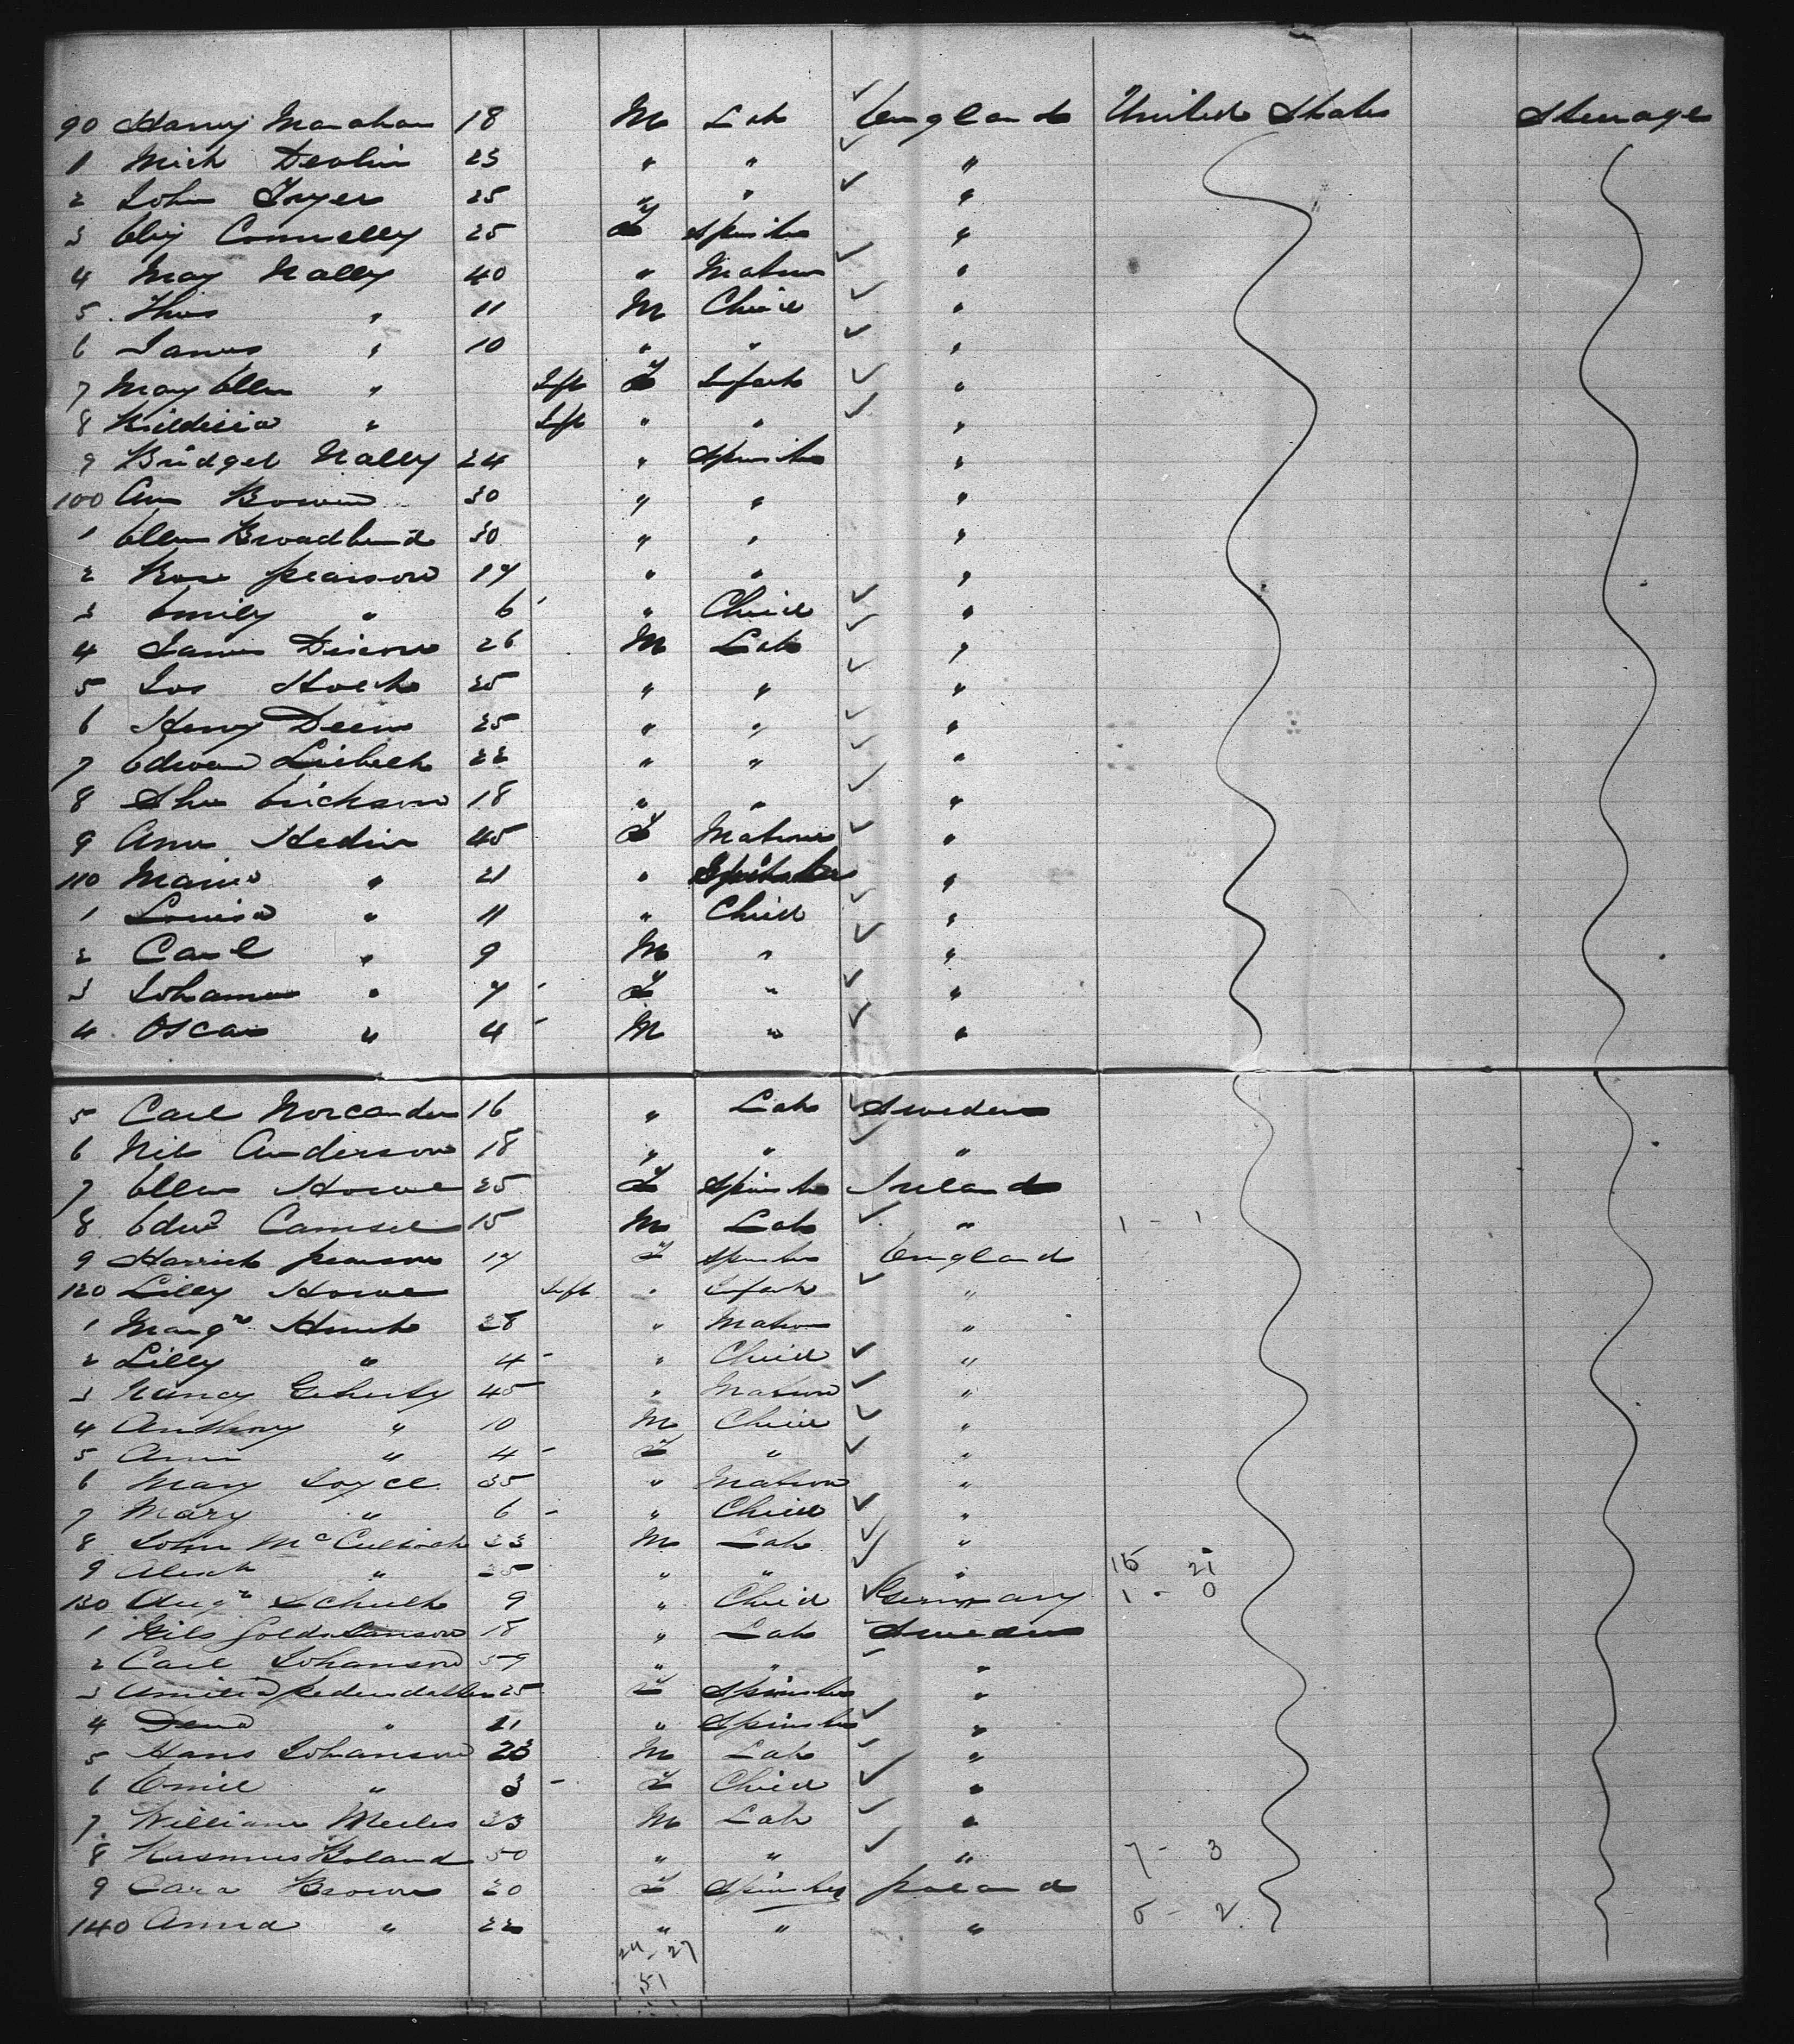 90 Harry Monahan 18 M Lab England United States Steerage
1 Mich Devlin 23 " " "
2 John Fryer 25 " " "
3 Eliz Connelly 25 F Spinster "
4 May Nally 40 " Matron "
5 Thos " 11 M Child "
6 James " 10 " " "
7 Mary Ellen " Inft F Infant "
8 " Inft " " "
9 Bridget Nally 24 " Spinster "
100 Ann Bowen 30 " " "
1 Ellen Broadbend 30 " " "
2 Rose Pearson 17 " " "
3 Emily " 6 " Child "
4 James 26 M Lab "
5 Jos 25 " " "
6 Henry Deen 25 " " "
7 Edward 22 " " "
8 Erickson 18 " " "
9 Ann Hedin 45 F Matron "
110 Maria " 21 " Spinster "
1 Louisa " 11 " Child "
2 Carl " 9 M " "
3 Johanna " 7 F " "
4 Oscar " 4 M " "
5 Carl Norcander 16 " Lab Sweden
6 Nils Anderson 18 " " "
7 Ellen Howe 25 F Spinster Ireland
8 Edwd 15 M Lab " 1 - 1
9 Harriet Pearson 17 F Spinster England
120 Lilly Howe Inft " Infant "
1 Margt 28 " Matron "
2 Lilly " 4 - " Child "
3 Nancy 45 " Matron "
4 Anthony " 10 M Child "
5 Ann " 4 - F " "
6 Mary Joyce 35 " Matron "
7 Mary " 6 - " Child "
8 John McCulloch 23 M Lab "
9 " 25 " " " 15 21
130 Augt 9 " Child Germany 1 - 0
1 Nils 18 " Lab Sweden
2 Carl Johanson 59 " " "
3 Amelia 25 F Spinster "
4 " 21 " Spinster "
5 Hans Johanson 23 M Lab "
6 Emil " 3 - F Child "
7 William 23 M Lab "
8 Rasmus Boland 50 " " " 7 - 3
9 Cara Brown 20 F Spinster Poland
140 Anna " 22 " " " 0 - 2
24 - 27
51